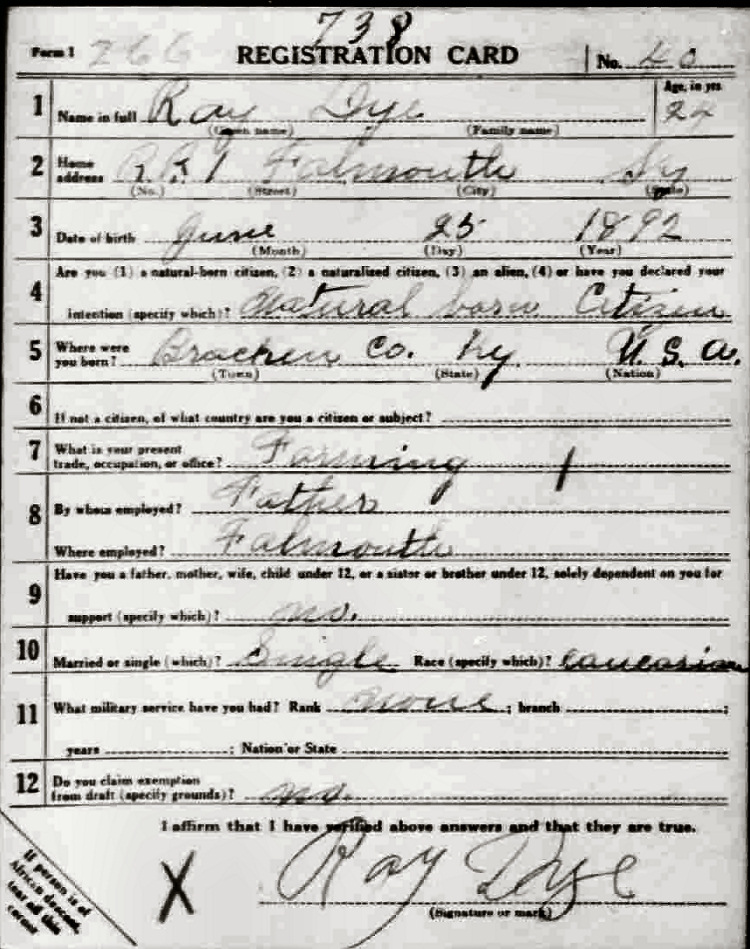 738
Form 1 266 REGISTRATION CARD No. 40
1 Name in full Ray Dye Age, in yrs 24
(Given name) (Family name)
2 Home address R.R.1 Falmouth Ky
(No.) (Street) (City) (State)
3 Date of birth June 25 1892
(Month) (Day) (Year)
4 Are you (1) a natural-born citizen, (2) a naturalized citizen, (3) an alien, (4) or have you declared your
intention (specify which)? Natural born Citizen
5 Where were you born? Bracken Co. Ky U.S.A.
(Town) (State) (Nation)
6 If not a citizen, of what country are you a citizen or subject?
7 What is your present trade, occupation, or office? Farming
8 By whom employed? Father
Where employed? Falmouth
9 Have you a father, mother, wife, child under 12, or a sister or brother under 12, solely dependent on you for
support (specify which)? no.
10 Married or single (which)? Single Race (specify which)? Caucasian
11 What military service have you had? Rank none ; branch ;
years ; Nation or State
12 Do you claim exemption from draft (specify grounds)? no.
I affirm that I have verified above answers and that they are true.
X Ray Dye
(Signature or mark)
If person is of
African descent,
tear off this
corner